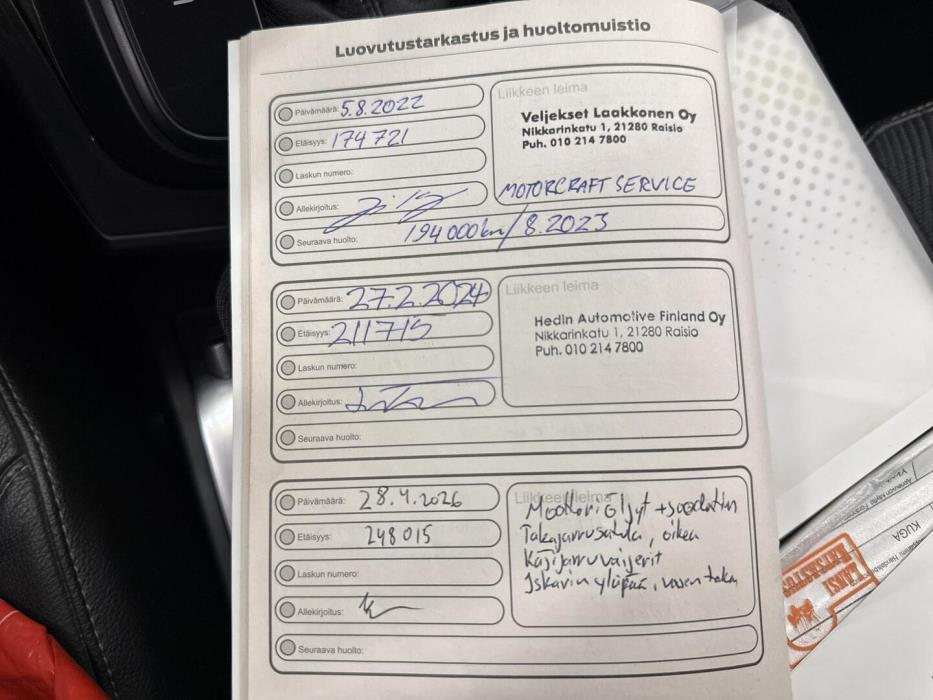 Luovutustarkastus ja huoltomuistio
Päivämäärä: 5.8.2022
Etäisyys: 174 721
Laskun numero:
Allekirjoitus:
Seuraava huolto: 194 000 km/8.2023
Liikkeen leima
Veljekset Laakkonen Oy
Nikkarinkatu 1, 21280 Raisio
Puh. 010 214 7800
MOTORCRAFT SERVICE
Päivämäärä: 27.2.2024
Etäisyys: 211715
Laskun numero:
Allekirjoitus:
Seuraava huolto:
Liikkeen leima
Hedin Automotive Finland Oy
Nikkarinkatu 1, 21280 Raisio
Puh. 010 214 7800
Päivämäärä: 28.4.2026
Etäisyys: 248015
Laskun numero:
Allekirjoitus:
Seuraava huolto:
Liikkeen leima
Moottoriöljyt + suodatin
Takajarrusatula, oikea
Käsijarruvaijerit
Iskarin yläpää, vasen taka
KUGA